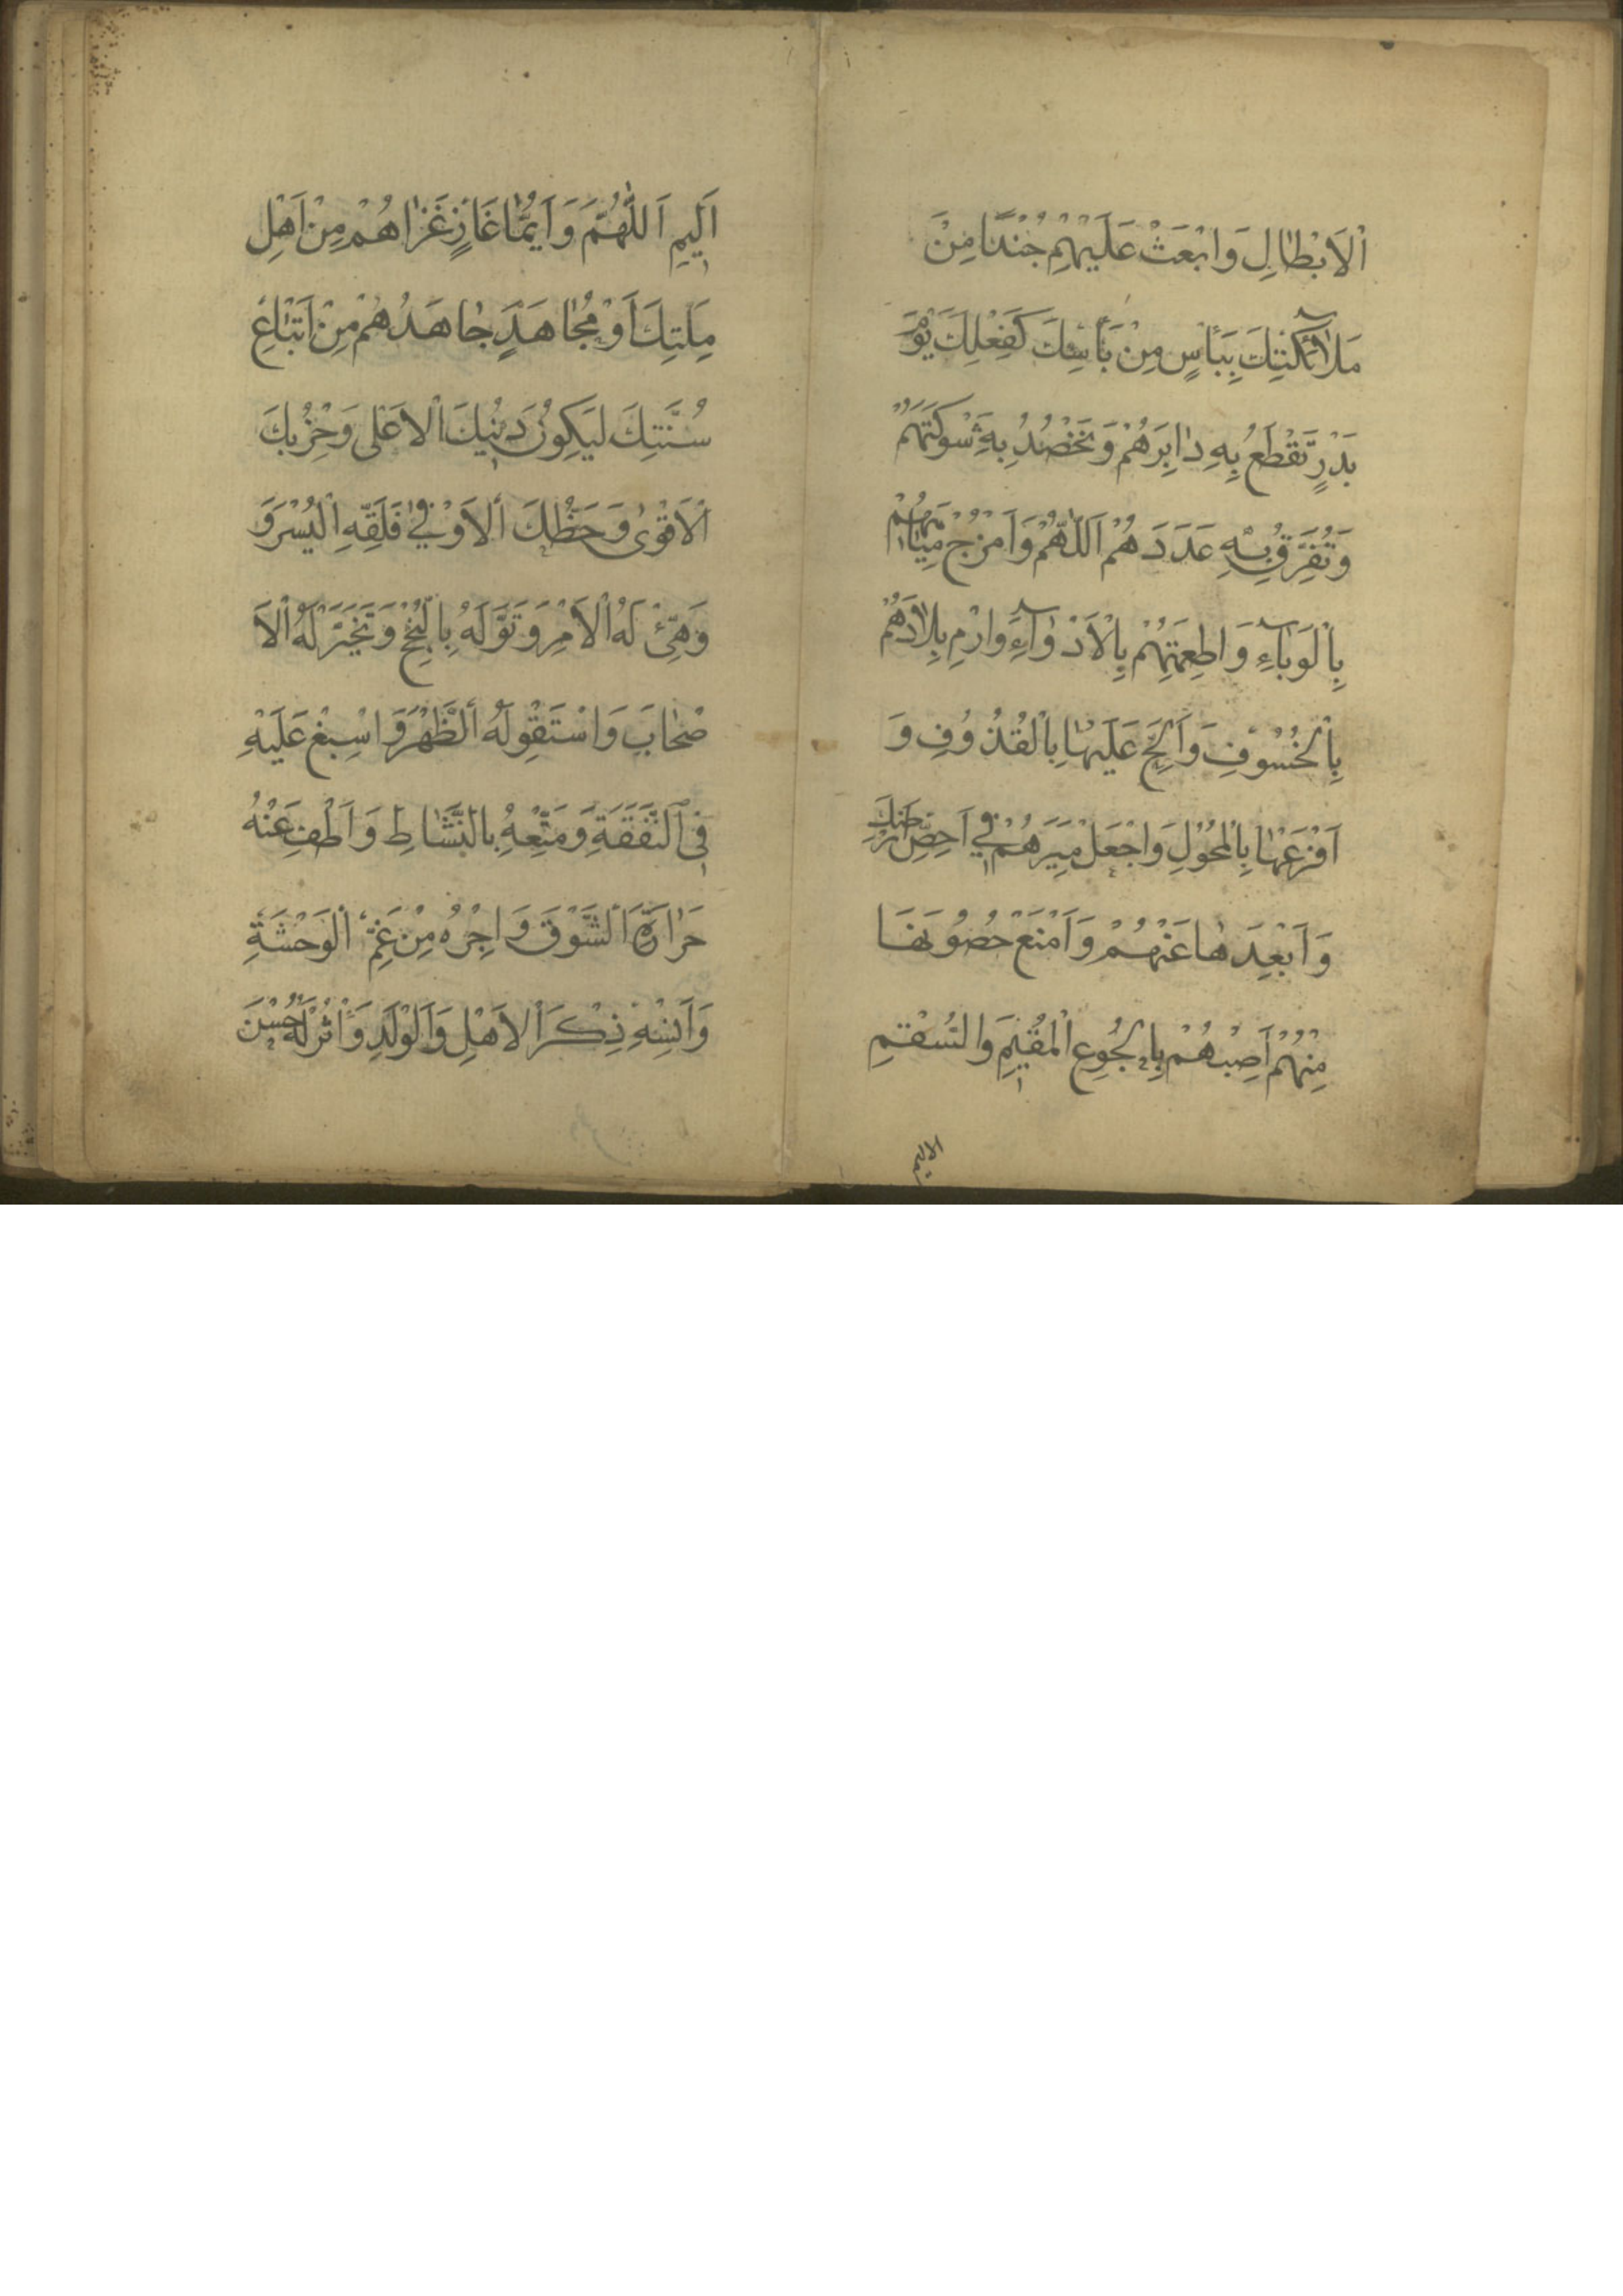 اْلاَبْطالِ وَابْعَثْ عَلَيْهِمْ جُنْدًا مِنْ
مَلاٰۤئِكَتِكَ بِبَأْسٍ مِنْ بَأْسِكَ كَفِعْلِكَ يَوْمَ
بَدْرٍ تَقْطَعُ بِهِ دٰابِرَهُمْ وَتَحْصُدُ بِهِ شَوْكَتَهُمْ
وَتُفَرِّقُ بِهِ عَدَدَهُمْ اَللّٰهُمَّ وَامْزُجْ مِيٰاهَهُمْ
بِالْوَبٰاۤءِ وَاَطْعِمَتَهُمْ بِالْاَدْوٰاۤءِ وَارْمِ بِلاٰدَهُمْ
بِالْخُسُوْفِ وَاَلِحَّ عَلَيْهٰا بِالْقُذُوْفِ وَ
اَفْزِعْهٰا بِالْمُحُوْلِ وَاجْعَلْ مِيَرَهُمْ فِي اَحَصِّ اَرْضِكَ
وَاَبْعَدِهٰا عَنْهُمْ وَاَمْنَعْ حُصُوْنَهٰا
مِنْهُمْ اَصِبْهُمْ بِالْجُوْعِ الْمُقِيْمِ وَالسُّقْمِ
الاليم
اَلِيمِ اَللّٰهُمَّ وَاَيُّمٰا غَازٍ غَزٰاهُمْ مِنْ اَهْلِ
مِلَّتِكَ اَوْ مُجٰاهِدٍ جٰاهَدَهُمْ مِنْ اَتْبٰاعِ
سُنَّتِكَ لِيَكُوْنَ دِيْنُكَ الْاَعْلٰى وَحِزْبُكَ
الْاَقْوٰى وَحَظُّكَ الْاَوْفٰي فَلَقِّهِ الْيُسْرَ وَ
وَهَيِّئْ لَهُ الْاَمْرَ وَتَوَلَّهُ بِالنُّجْحِ وَتَخَيَّرْ لَهُ الْاَ
صْحٰابَ وَاسْتَقْوِ لَهُ الظَّهْرَ وَاَسْبِغْ عَلَيْهِ
فِى النَّفَقَةِ وَمَتِّعْهُ بِالنَّشَاطِ وَاَطْفِ عَنْهُ
حَرٰارَةَ الشَّوْقِ وَاَجِرْهُ مِنْ غَمِّ الْوَحْشَةِ
وَاَنْسِهِ ذِكْرَ الْاَهْلِ وَالْوَلَدِ وَاْثُرْ لَهُ حُسْنَ